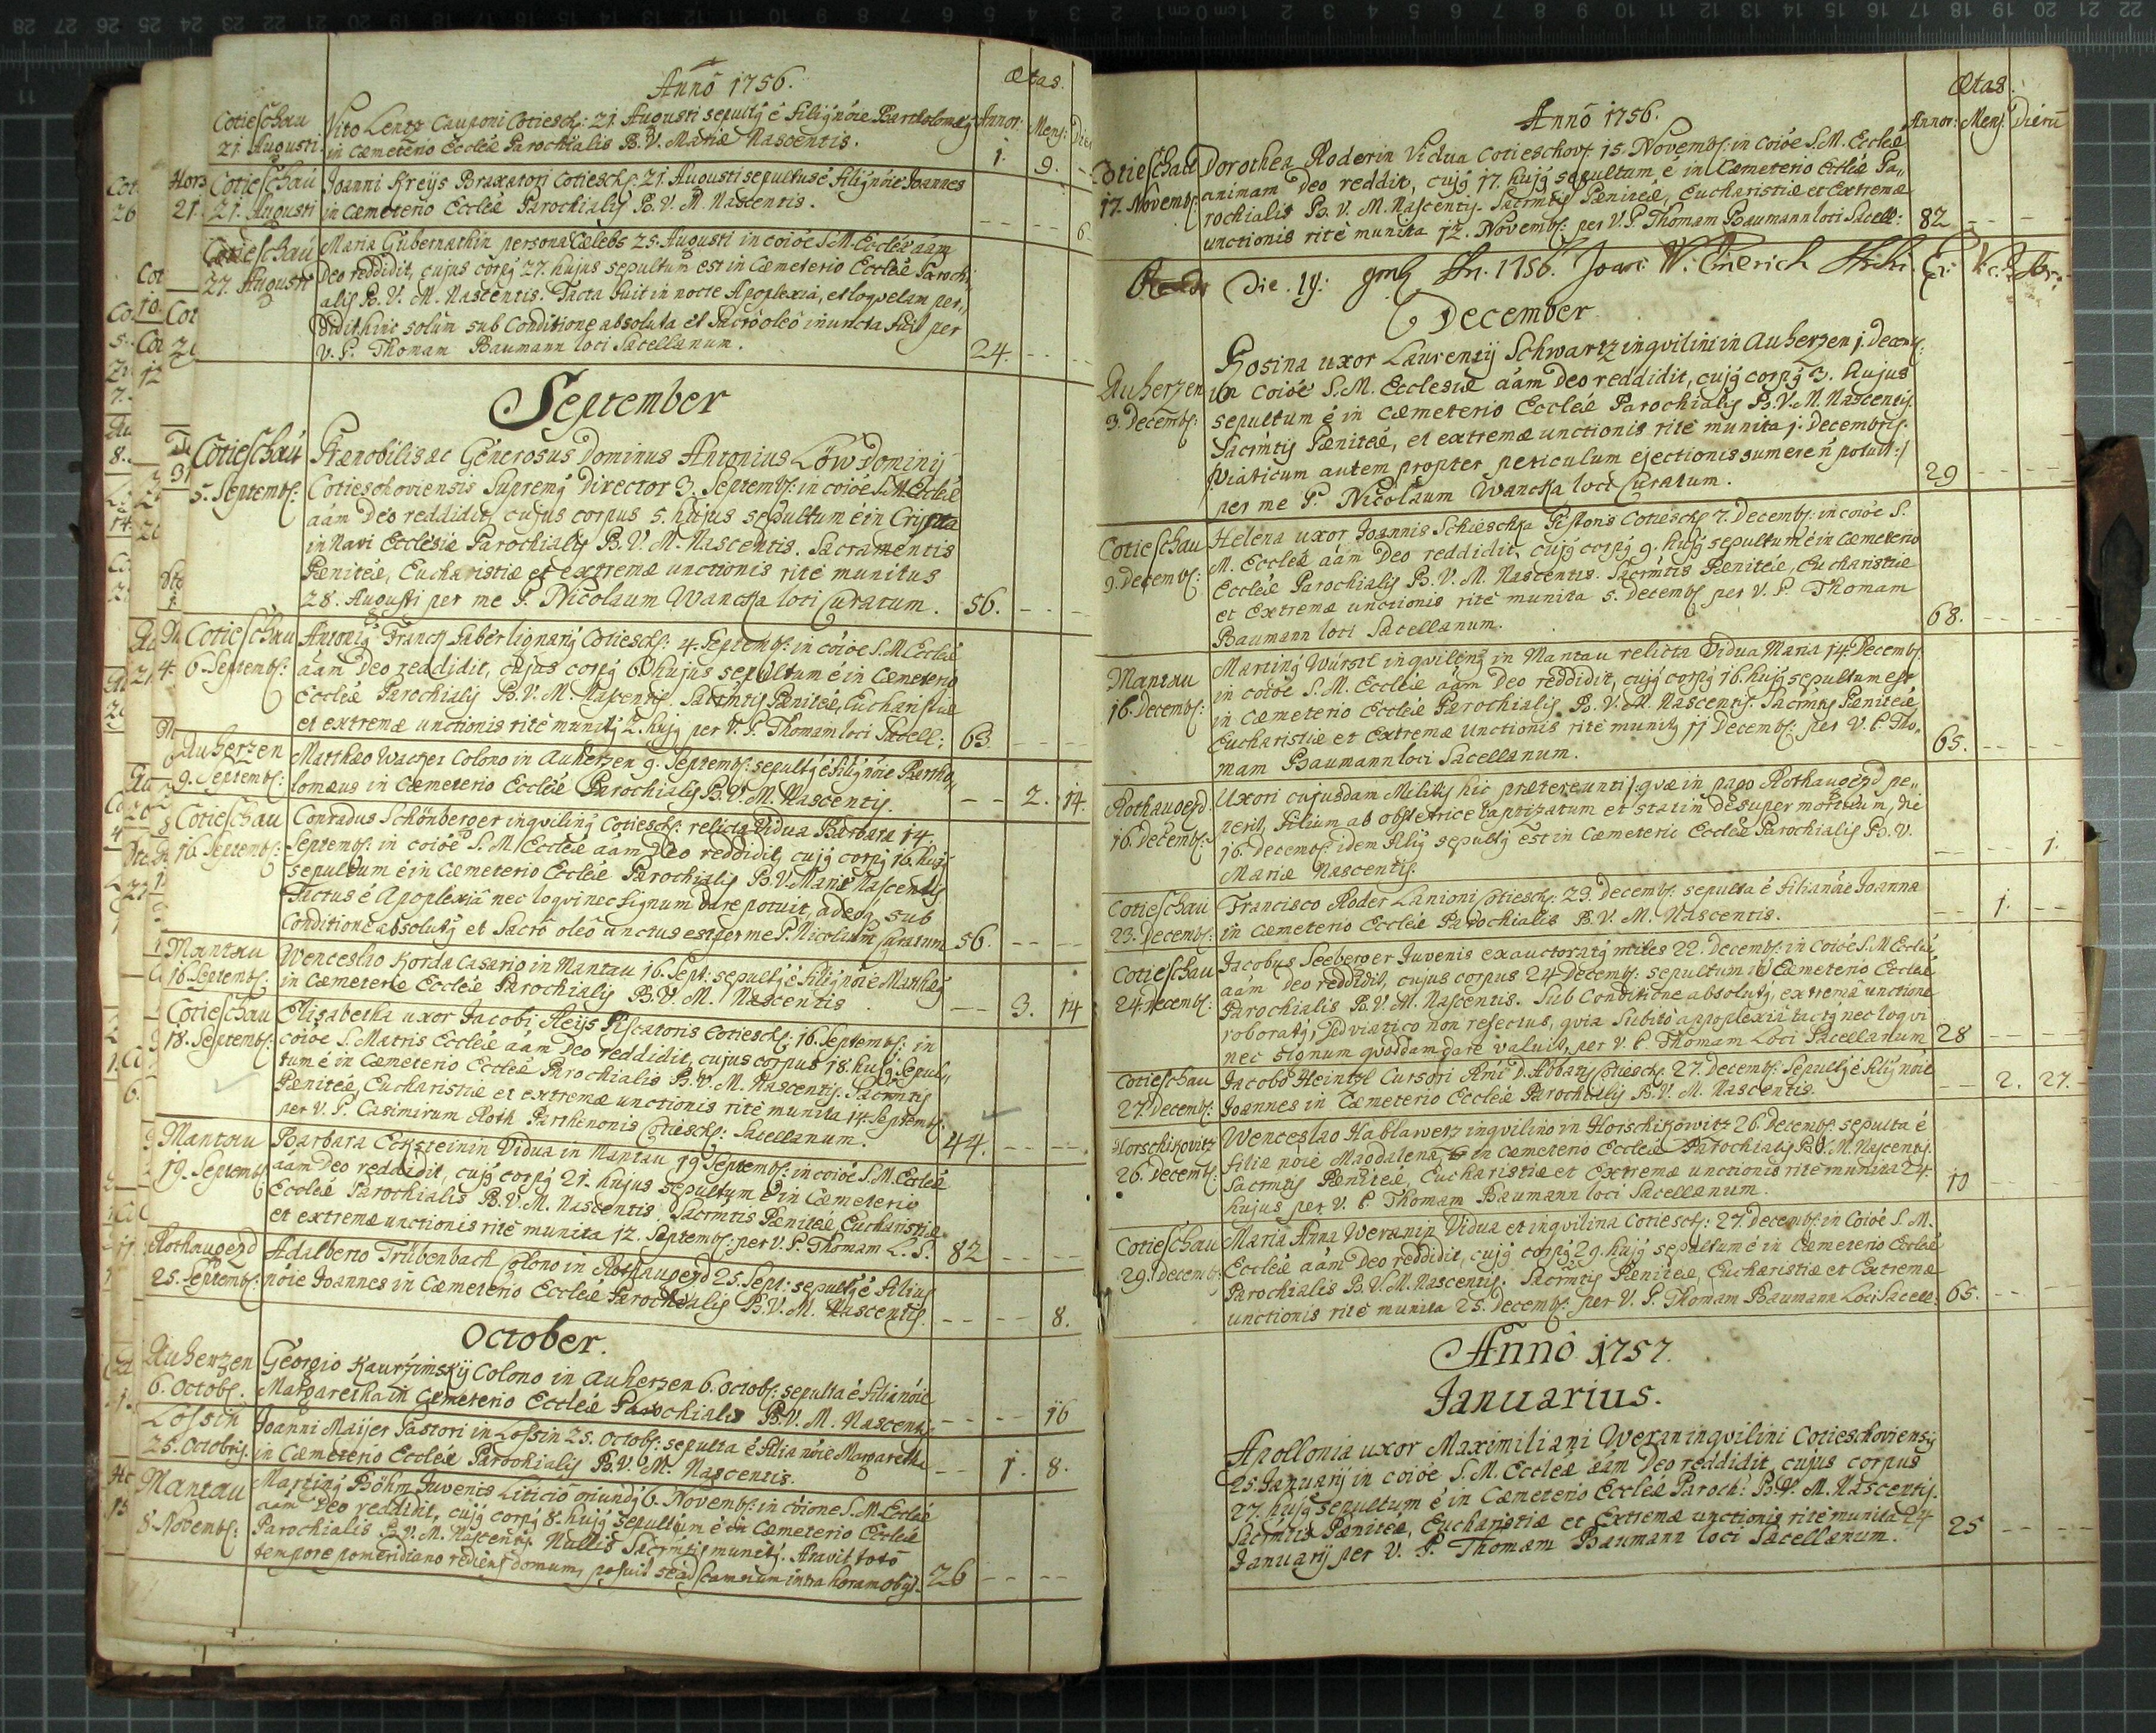 Anno 1756.
Ætas.
Annor: Mens: Dies
Cotieschau
21. Augusti
Vito Lentz Cauponi Cotiesch: 21. Augusti sepultg é filig nõie Bartholomæg
in Cæmeterio Eccleiæ Parochialis B. V. Mariæ Nascentis.
1. 9. -
Cotieschau
21. Augusti
Joanni Kreijs Braxatori Cotiesch: 21. Augusti sepultus é filig nõie Joannes
in Cæmeterio Eccleiæ Parochialis B. V. M. Nascentis.
6
Cotieschau
27. Augusti
Maria Gubernathin persona Cælebs 25. Augusti in coiõe S. M. Eccleiæ aãm
Deo reddidit, cujus corpg 27. hujus sepultum est in Cæmeterio Eccleiæ Parochi
alis B. V. M. Nascentis. Tacta fuit in nocte Apoplexia, et loquelam per,,
didit hinc solum sub Conditione absoluta et Sacro oleô inuncta fuit per
V. P. Thomam Baumann loci Sacellanum.
24.
September
Cotieschau
5. Septemb:
Prænobilis ac Generosus Dominus Antonius Löw Dominij
Cotieschoviensis Supremg Director 3. Septemb: in coiõe S. M. Eccleiæ
aãm Deo reddidit, cujus corpus 5. hujus sepultum é in Crypta
in Navi Ecclesiæ Parochialis B. V. M. Nascentis. Sacramentis
Pæniteæ, Eucharistiæ et extremæ unctionis ritè munitus
28. Augusti per me P. Nicolaum Wancka loci Curatum.
56.
Cotieschau
6. Septemb:
Antonig Franck faber lignarig Cotiesch: 4. Septemb: in coiõe S. M. Eccleiæ
aãm Deo reddidit, cujus corpg 6 hujus sepultum é in Cæmeterio
Eccleiæ Parochialis B. V. M. Nascentis. Sacrmtis Pæniteæ, Eucharistiæ
et extremæ unctionis ritè munitg 2. hujg per V. P. Thomam loci Sacell:
63.
Auherzen
9. Septemb:
Matthæo Waczer Colono in Auherzen 9. Septemb: sepultg é filig nõie Bartho,,
lomæus in Cæmeterio Eccleiæ Parochialis B. V. M. Nascentis.
2. 14.
Cotieschau
16. Septemb:
Conradus Schönberger inqviling Cotiesch: relicta Vidua Barbara 14.
Septemb: in coiõe S. M. Eccleiæ aãm Deo reddidit, cujg corpg 16. hujg
sepultum é in Cæmeterio Eccleiæ Parochialis B. V. Mariæ Nascentis
Tactus é Apoplexiâ nec loqvi nec signum dare potuit, adeoq sub
Conditione absolutg et Sacrô oleô unctus est per me P. Nicolaum Curatum
56.
Mantau
16. Septemb:
Wenceslao Korda Casario in Mantau 16. Sept: sepultg é filig nõie Mathæg
in Cæmeterio Eccleiæ Parochialis B. V. M. Nascentis
3. 14
Cotieschau
18. Septemb:
Elisabetha uxor Jacobi Reijs Piscatoris Cotiesch: 16. Septemb: in
coiõe S. Matris Eccleiæ aãm Deo reddidit, cujus corpus 18. hujg sepul,,
tum é in Cæmeterio Eccleiæ Parochialis B. V. M. Nascentis. Sacrmtis
Pæniteæ, Eucharistiæ et extremæ unctionis ritè munita 14. Septemb:
per V. P. Casimirum Roth Parthenonis Cotiesch: Sacellanum.
44.
Mantau
19. Septemb:
Barbara Ecksteinin Vidua in Mantau 19 Septemb: in coiõe S. M. Eccleiæ
aãm Deo reddidit, cujg corpg 21. hujus sepultum é in Cæmeterio
Eccleiæ Parochialis B. V. M. Nascentis. Sacrmtis Pæniteæ, Eucharistiæ
et extremæ unctionis ritè munita 12. Septemb: per V. P. Thomam L. S.
82
Rothaugezd
25. Septemb:
Adalberto Trübenbach Colono in Rothaugezd 25. Sept: sepultg é filius
nõie Joannes in Cæmeterio Eccleiæ Parochialis B. V. M. Nascentis.
8.
October.
Auherzen
6. Octob:
Georgio Kaurzimskij Colono in Auherzen 6. Octob: sepulta é filia nõie
Margaretha in Cæmeterio Eccleiæ Parochialis B. V. M. Nascentis
16
Lossin
25. Octobris.
Joanni Maijer Pastori in Lossin 25. Octob: sepulta é filia nõie Margaretha
in Cæmeterio Eccleiæ Parochialis B. V. M. Nascentis.
1. 8.
Mantau
8. Novemb:
Marting Böhm Juvenis Liticiô oriundg 6. Novemb: in coione S. M. Eccleiæ
aãm Deo reddidit, cujg corpg 8. hujg sepultum é in Cæmeterio Eccleiæ
Parochialis B. V. M. Nascentis. Nullis Sacrmtis munitg. Aravit totô
tempore pomeridiano rediens domum, posuit se ad scamnum intra horam obijt.
26
Anno 1756.
Ætas.
Annor: Mens: Dierũ
Cotieschau
17. Novemb:
Dorothea Roderin Vidua Cotieschov: 15. Novemb: in coiõe S. M. Eccleiæ
animam Deo reddit, cujg 17. hujg sepultum é in Cæmeterio Eccleiæ Pa,,
rochialis B. V. M. Nascentis. Sacrmtis Pæniteæ, Eucharistiæ et Extremæ
unctionis ritè munita 12. Novemb: per V. P. Thomam Baumann loci Sacell:
82
Die 19: 1756. Joan: W.
December
Auherzen
3. Decemb:
Rosina uxor Laurentij Schwartz inqvilini in Auherzen 1. Decemb:
in Coiõe S. M. Ecclesiæ aãm Deo reddidit, cujg corpg 3. hujus
sepultum é in Cæmeterio Eccleiæ Parochialis B. V. M. Nascentis.
Sacrmtis Pæniteæ, et extremæ unctionis ritè munita 1. Decembris.
/:Viaticum autem propter periculum ejectionis sumere ñ potuit:/
per me P. Nicolaum Wancka loci Curatum.
29
Cotieschau
9. Decemb:
Helena uxor Joannis Schieschka Pistoris Cotiesch: 7. Decemb: in coiõe S.
M. Eccleiæ aãm Deo reddidit, cujg corpg 9. hujg sepultum é in Cæmeterio
Eccleiæ Parochialis B. V. M. Nascentis. Sacrmtis Pæniteæ, Eucharistiæ
et Extremæ unctionis ritè munita 5. Decemb: per V. P. Thomam
Baumann loci Sacellanum.
68.
Mantau
16. Decemb:
Marting Würstl inqviling in Mantau relicta Vidua Maria 14. Decemb:
in coiõe S. M. Eccleiæ aãm Deo reddidit, cujg corpg 16. hujg sepultum est
in Cæmeterio Eccleiæ Parochialis B. V. M. Nascentis. Sacrmtis Pæniteæ,
Eucharistiæ et Extremæ Unctionis ritè munitg 11 Decemb: per V. P. Tho,,
mam Baumann loci Sacellanum.
65.
Rothaugezd
16. Decemb:
Uxori cujusdam Militis hic prætereunti/: qvæ in pago Rothaugezd pe,,
perit, filium ab obstetrice baptizatum et statim desuper mortuum, die
16. Decemb: idem filig sepultg est in Cæmeterio Eccleiæ Parochialis B. V.
Mariæ Nascentis.
1.
Cotieschau
23. Decemb:
Francisco Roder Lanioni Cotiesch: 23. Decemb: sepulta é filia nõie Joanna
in Cæmeterio Eccleiæ Parochialis B. V. M. Nascentis.
1.
Cotieschau
24. Decemb:
Jacobus Seeberger Juvenis exauctoratg miles 22. Decemb: in coiõe S. M. Eccleiæ
aãm Deo reddidit, cujus corpus 24 Decemb: sepultum in Cæmeterio Eccleiæ
Parochialis B. V. M. Nascentis. Sub Conditione absolutg, extremâ unctione
roboratg, sed viatico non refectus, qvia subitò appoplexiâ tactg nec loqvi
nec signum qvoddam dare valuit, per V. P. Thomam Loci Sacellanum
28
Cotieschau
27. Decemb:
Jacobo Heintzl Cursori Cotiesch: 27. Decemb: Sepultg é filig nõie
Joannes in Cæmeterio Eccleiæ Parochialis B. V. M. Nascentis.
2. 27.
Horschikovitz
26. Decemb:
Wenceslao Hablawetz inqvilino in Horschikowitz 26. Decemb: sepulta é
filia nõie Magdalena in Cæmeterio Eccleiæ Parochialis B. V. M. Nascentis.
Sacrmtis Pæniteæ, Eucharistiæ et Extremæ unctionis ritè munita 24.
hujus per V. P. Thomam Baumann loci Sacellanum.
10
Cotieschau
29. Decemb:
Maria Anna Weranin Vidua et inqvilina Cotiesch: 27. Decemb: in Coiõe S. M.
Eccleiæ aãm Deo reddidit, cujg corpg 29. hujg sepultum é in Cæmeterio Eccleiæ
Parochialis B. V. M. Nascentis. Sacrmtis Pæniteæ, Eucharistiæ et Extremæ
unctionis ritè munita 25. Decemb: per V. P. Thomam Baumann Loci Sacell:
65.
Anno 1757.
Januarius.
Apollonia uxor Maximiliani Weran inqvilini Cotieschoviensis
25. Januarij in coiõe S. M. Eccleiæ aãm Deo reddidit, cujus corpus
27. hujg sepultum é in Cæmeterio Eccleiæ Paroch: B. V. M. Nascentis.
Sacrmtis Pæniteæ, Eucharistiæ et Extremæ unctionis ritè munita 24
Januarij per V. P. Thomam Baumann loci Sacellanum.
25